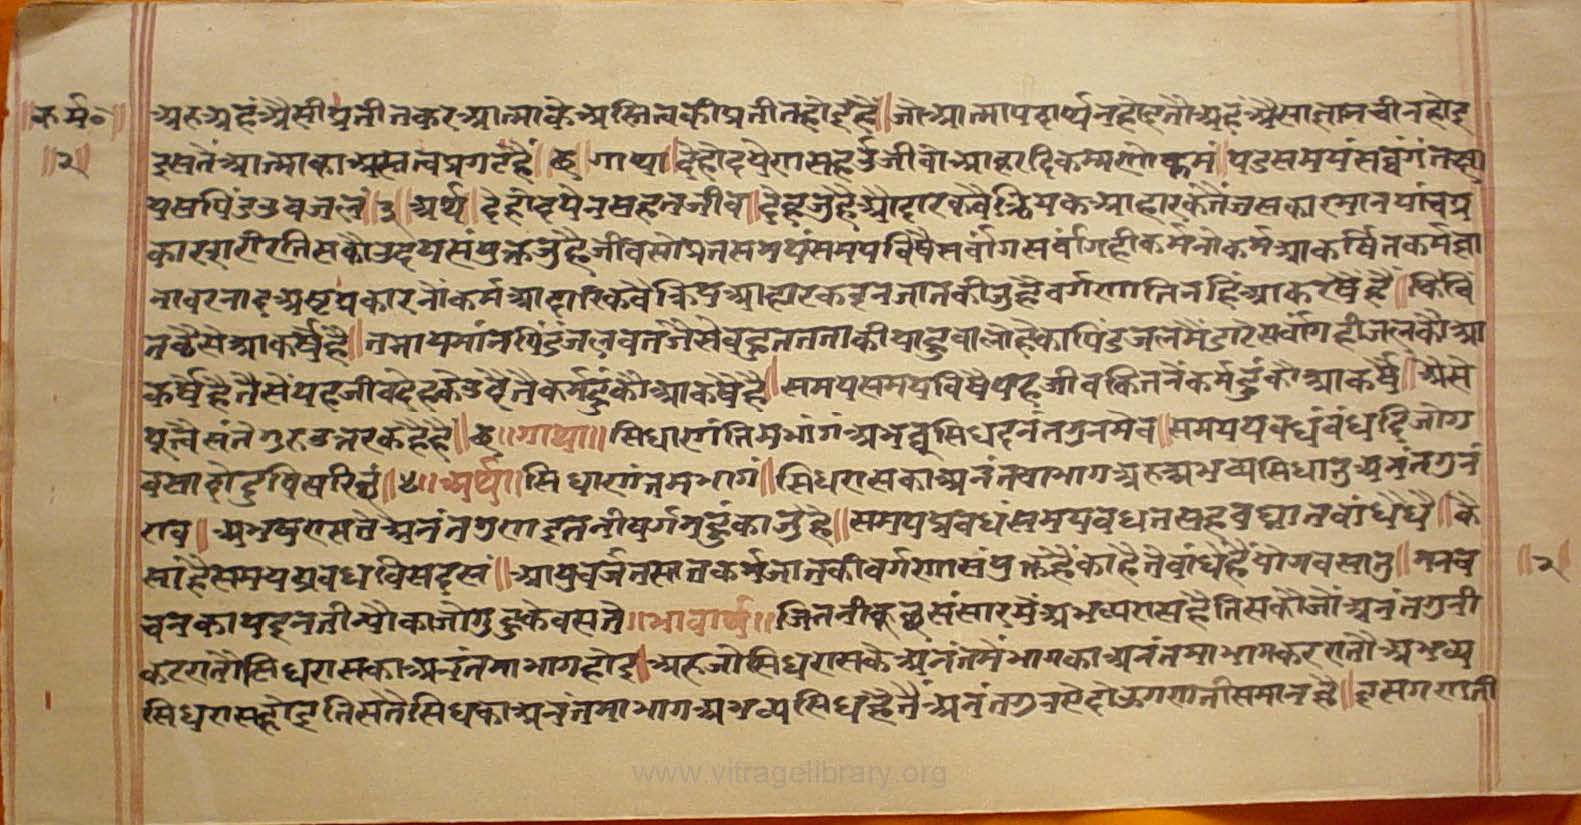 ॥कर्म॰॥
॥२॥
अरु अहं अैसी प्रतीत कर आत्मा के अस्तित्व की प्रतीत होई है॥ जो आत्मा पदार्थ न होइ तौ अहं अैसा ज्ञान ची न होइ
इसतें आत्मा का अस्तत्व प्रगट है॥ छ॥ गाथा॥ देहोदयेण सहउं जीवो आहारादि कम्म णोकम्मं॥ पडसमयं सव्वंगं तत्ता
यसपिंडउव जलं॥३॥ अर्थ॥ देहोदयेन सहत जीव॥ देह जु है औदारक वैक्रियक आहारक तैजस कारमान पांच प्र
कार शरीर तिसकौ उदय संयुक्त जु है जीव सो प्रत समयं समय विषै सर्वांग सर्वांग ही कर्म नोकर्म आकर्षित कर्म ज्ञा
नावरनाद अष्ट प्रकार नोकर्म आहारक वैक्रिय आहारक इन जात की जु है वर्गणा तिनहिं आकरषै है॥ किंवि
त कैसे आकर्षै है॥ तप्तायमांन पिंडं जलवत जैसे बहुत तता कीया हुवा लोहे का पिंड जल मै डार सर्वांग ही जल कौ आ
कर्षै है तैसें यह जीव देह के उदै तै कर्महुं कौ आकर्षै है॥ समय समय विषै यह जीव कितनें कर्महुं कौ आकर्षै॥ अैसे
पूछै संतै गुरु उत्तर कहै है॥ छ॥ गाथा॥ सिधाणंतिमभांगं अभव्वसिधदनंतगुनमेव॥ समयपवधं बंधदि जोग
वसादो दु विसरित्थं॥४॥ अर्थ॥ सिधाणंतमभागं॥ सिधरास का अनंतवा भाग अरु अभव्यसिधातु अनंतगुनं
एव॥ अभव्यरास तै अनंतगुणा इतनी वर्गनुहुं का जु है॥ समयप्रबधं समयबधन सह वध्नात बांधै है॥ कै
सा है समयप्रबध विसदृसं॥ आयु वर्जन सात कर्म जात की वर्गणा संयुक्त है काहै तै बांधै है योगवसातु॥ मन व
चन काय इन तीन्यौ का जो गुहु के वस तै॥ भावार्थ॥ जितनी कुछ संसार मै अभव्यरास है तिसकौ जो अनंत गुनी
कर रातौ सिधरास का अनंतमा भाग होइ॥ अरु जो सिधरास के अनंतमै भाग का अनंतमा भाग कर रातौ अभव्य
सिधरास होइ तिसतै सिध का अनंतमा भाग अभव्यसिधहुं तै अनंत गुन है दोऊ गणती समान है॥ इस गणती
॥२॥
www.vitragelibrary.org